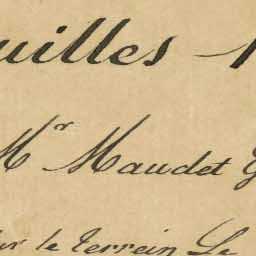 uilles
Mr Maudet G
ur le terrein Le